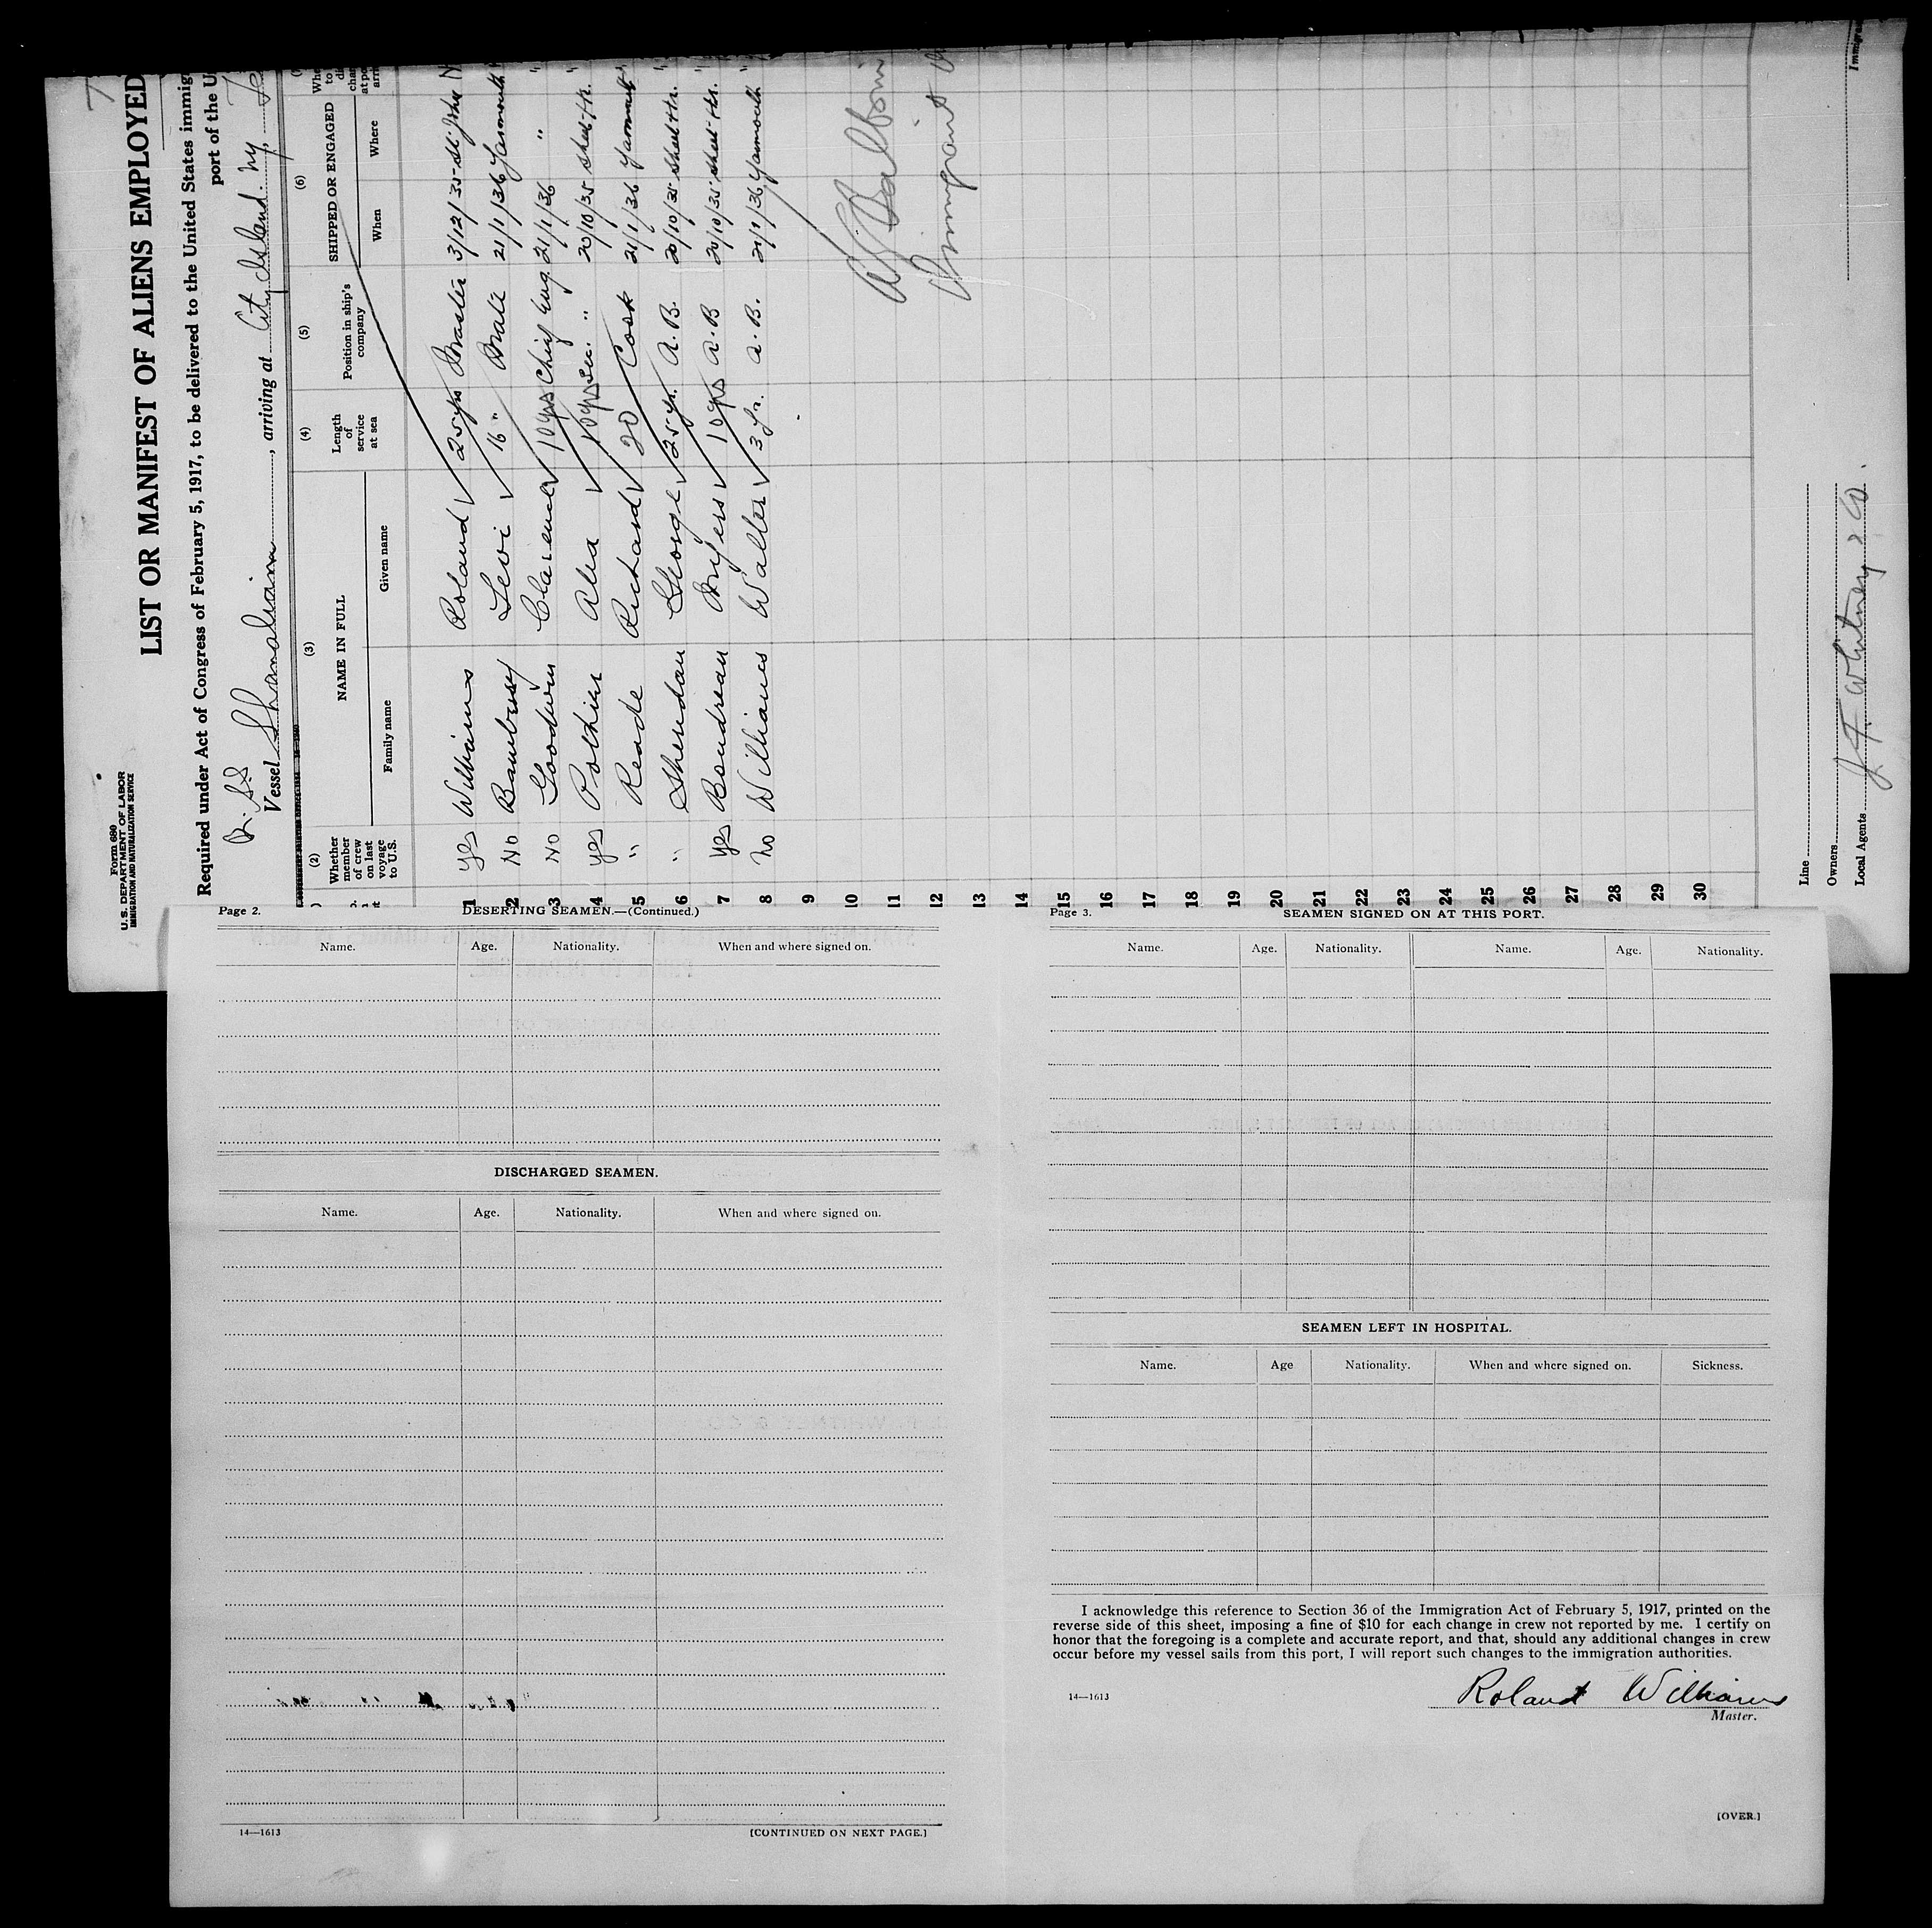 Form 680
U.S. DEPARTMENT OF LABOR
IMMIGRATION AND NATURALIZATION SERVICE
LIST OR MANIFEST OF ALIENS EMPLOYED
Required under Act of Congress of February 5, 1917, to be delivered to the United States immig
port of the U
Br. S.S
Vessel Shanalian, arriving at City Island. Ny,
(2) Whether member of crew on last voyage to U.S.
(3) NAME IN FULL
Family name
Given name
(4) Length of service at sea
(5) Position in ship's company
(6) SHIPPED OR ENGAGED
When
Where
1 yes Williams Roland 25 yrs Master 3/12/35 St. John
2 No Bambury Levi 16 " Mate 21/1/36 Yarmouth
3 No Goodwin Clarence 10 yrs Chief Eng. 21/1/36 "
4 yes Pothier Alva 10 yrs Sec. " 20/10/35 Sheet Hr.
5 " Reade Richard 20 Cook 21/1/36 Yarmouth
6 " Sheridan George 25 yr. A.B. 20/10/35 Sheet Hr.
7 yes Boudreau Myers 10 yrs A.B 20/10/35 Sheet Hr.
8 No Williams Walter 3 yr. A.B. 21/1/36 Yarmouth
9
10
11
12
13
14
15
16
17
18
19
20
21
22
23
24
25
26
27
28
29
30
Immigrant
Line
Owners
Local Agents J. F. Whitney & Co.
Page 2.
DESERTING SEAMEN.—(Continued.)
Name. Age. Nationality. When and where signed on.
DISCHARGED SEAMEN.
Name. Age. Nationality. When and where signed on.
14—1613
[CONTINUED ON NEXT PAGE.]
Page 3.
SEAMEN SIGNED ON AT THIS PORT.
Name. Age. Nationality. Name. Age. Nationality.
SEAMEN LEFT IN HOSPITAL.
Name. Age Nationality. When and where signed on. Sickness.
I acknowledge this reference to Section 36 of the Immigration Act of February 5, 1917, printed on the
reverse side of this sheet, imposing a fine of $10 for each change in crew not reported by me. I certify on
honor that the foregoing is a complete and accurate report, and that, should any additional changes in crew
occur before my vessel sails from this port, I will report such changes to the immigration authorities.
14—1613
Roland Williams
Master.
[OVER.]